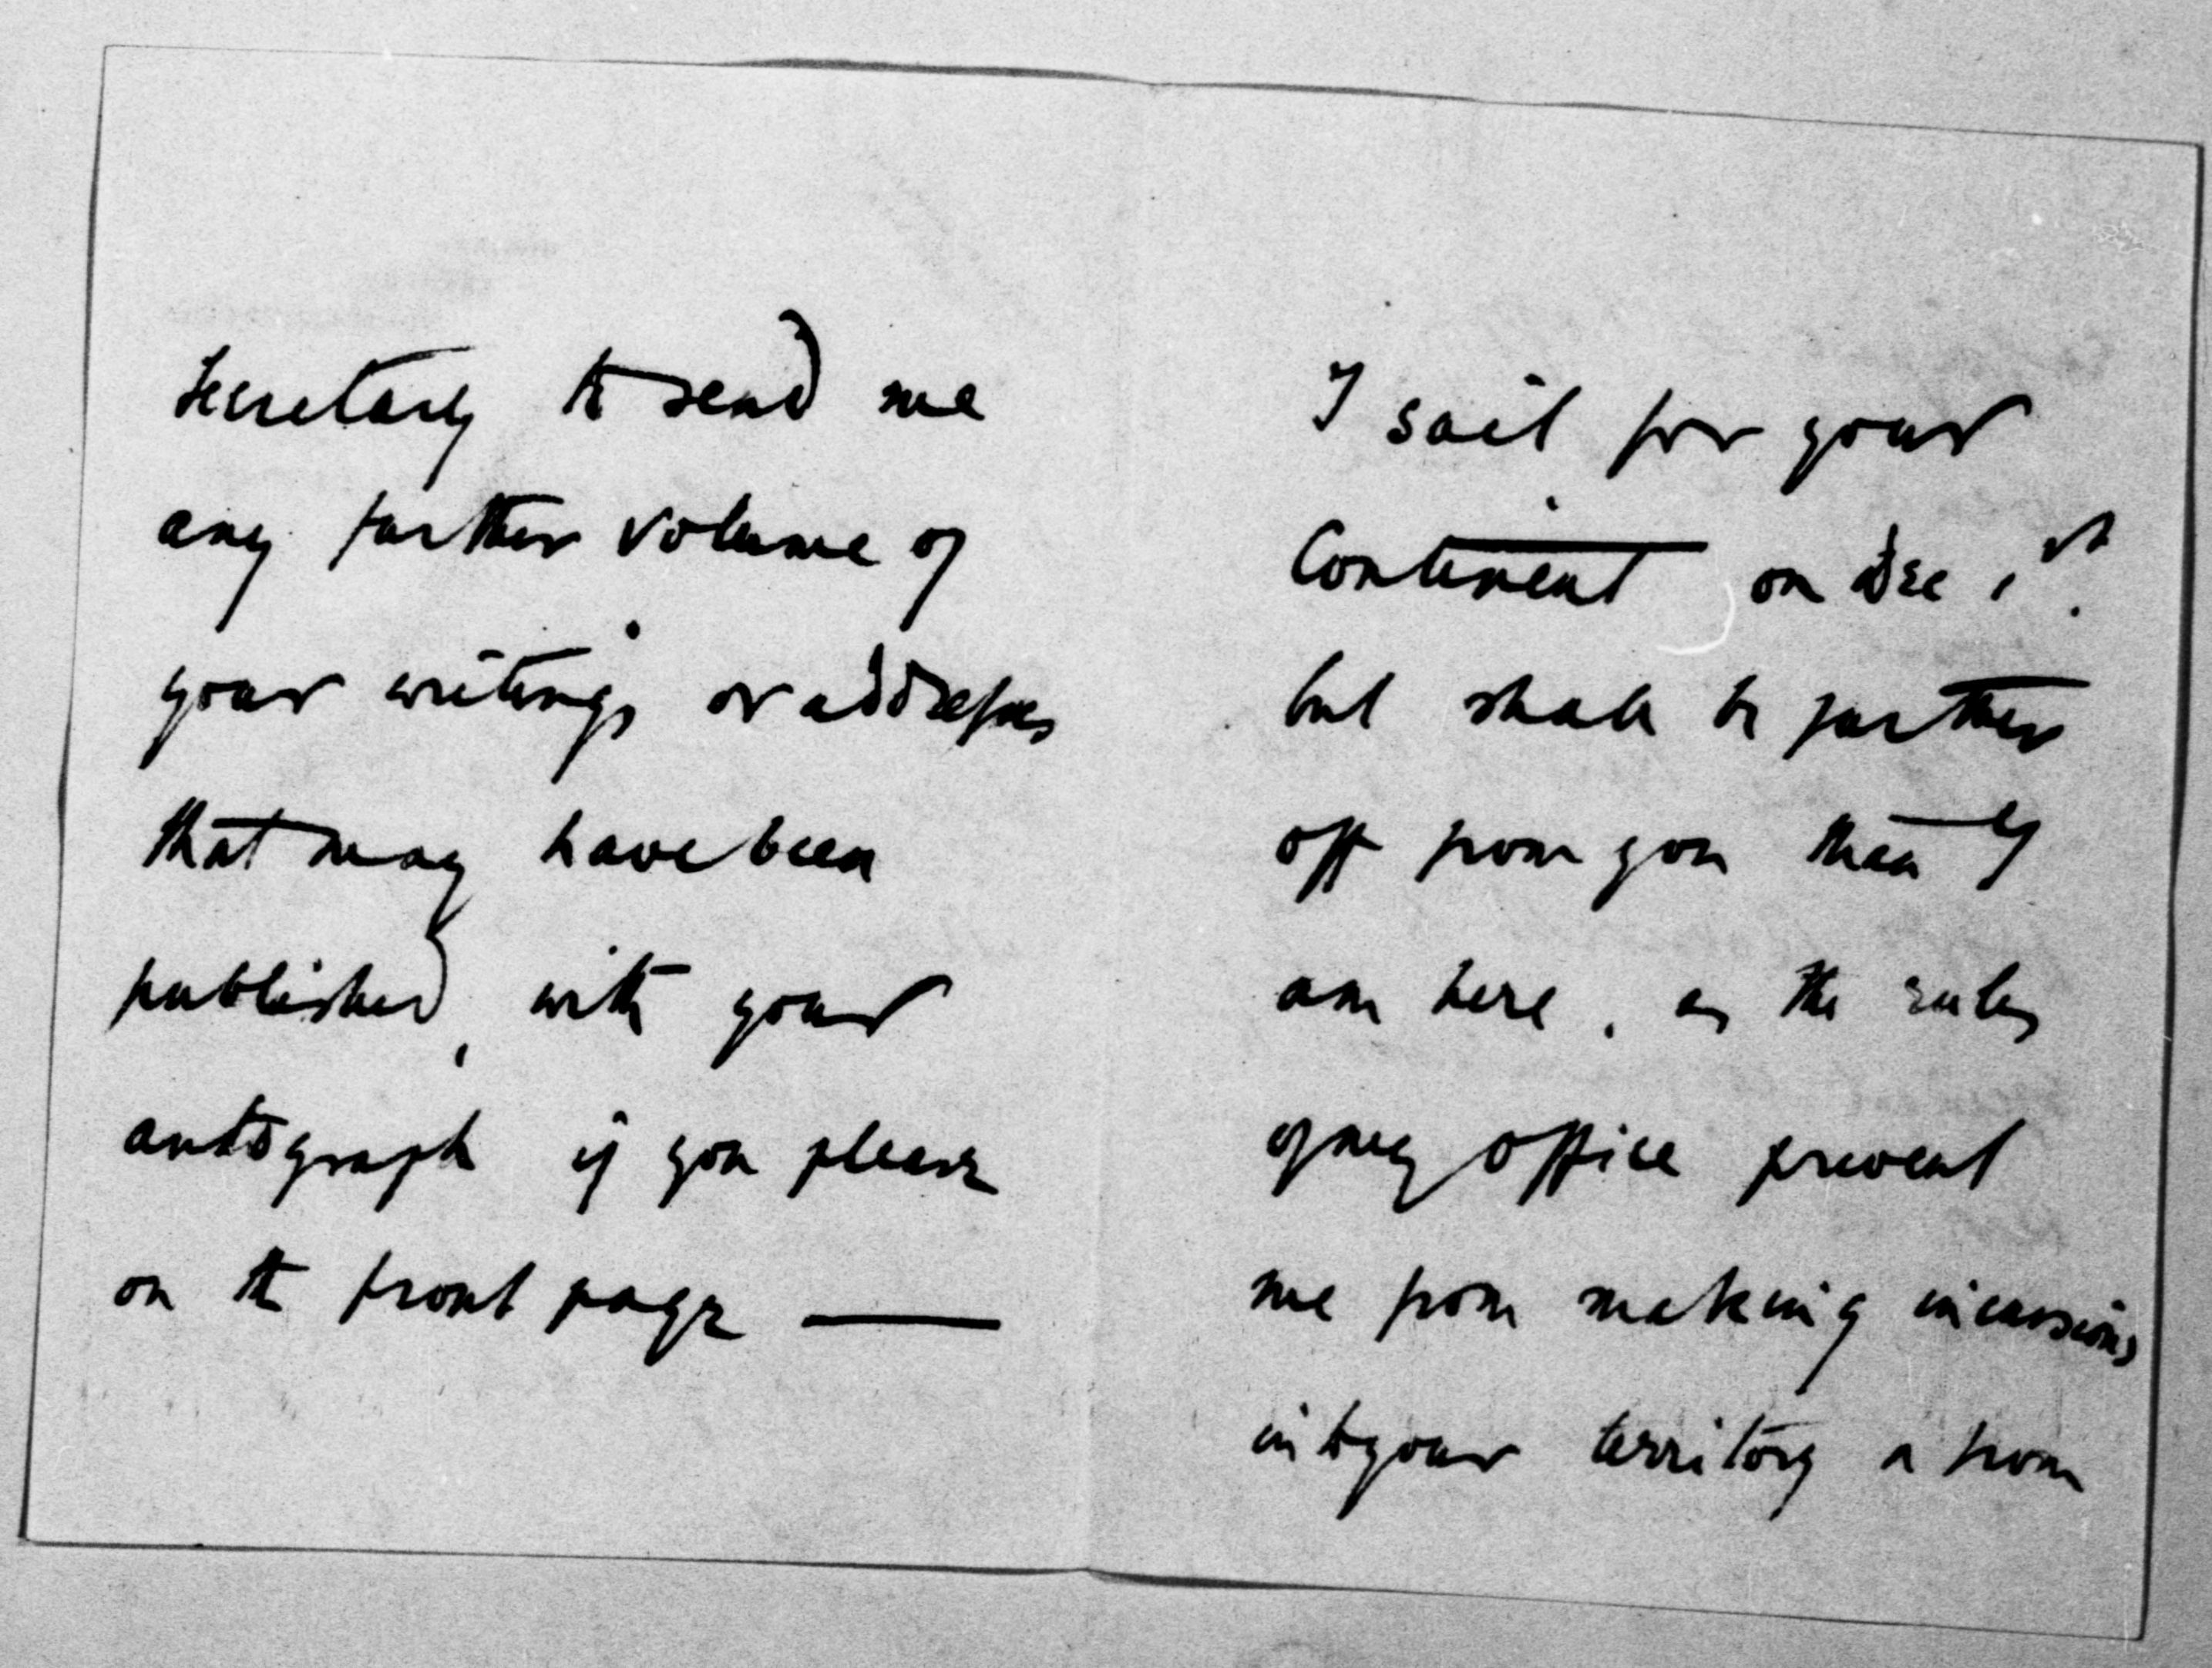 Secretary to send me
any further volume of
your writings or addresses
that may have been
published, with your
autograph if you please
on the front page —
I sail for your
Continent on Dec 1st.
but shall be further
off from you than I
am here, as the rules
of my office prevent
me from making incursions
into your territory or from